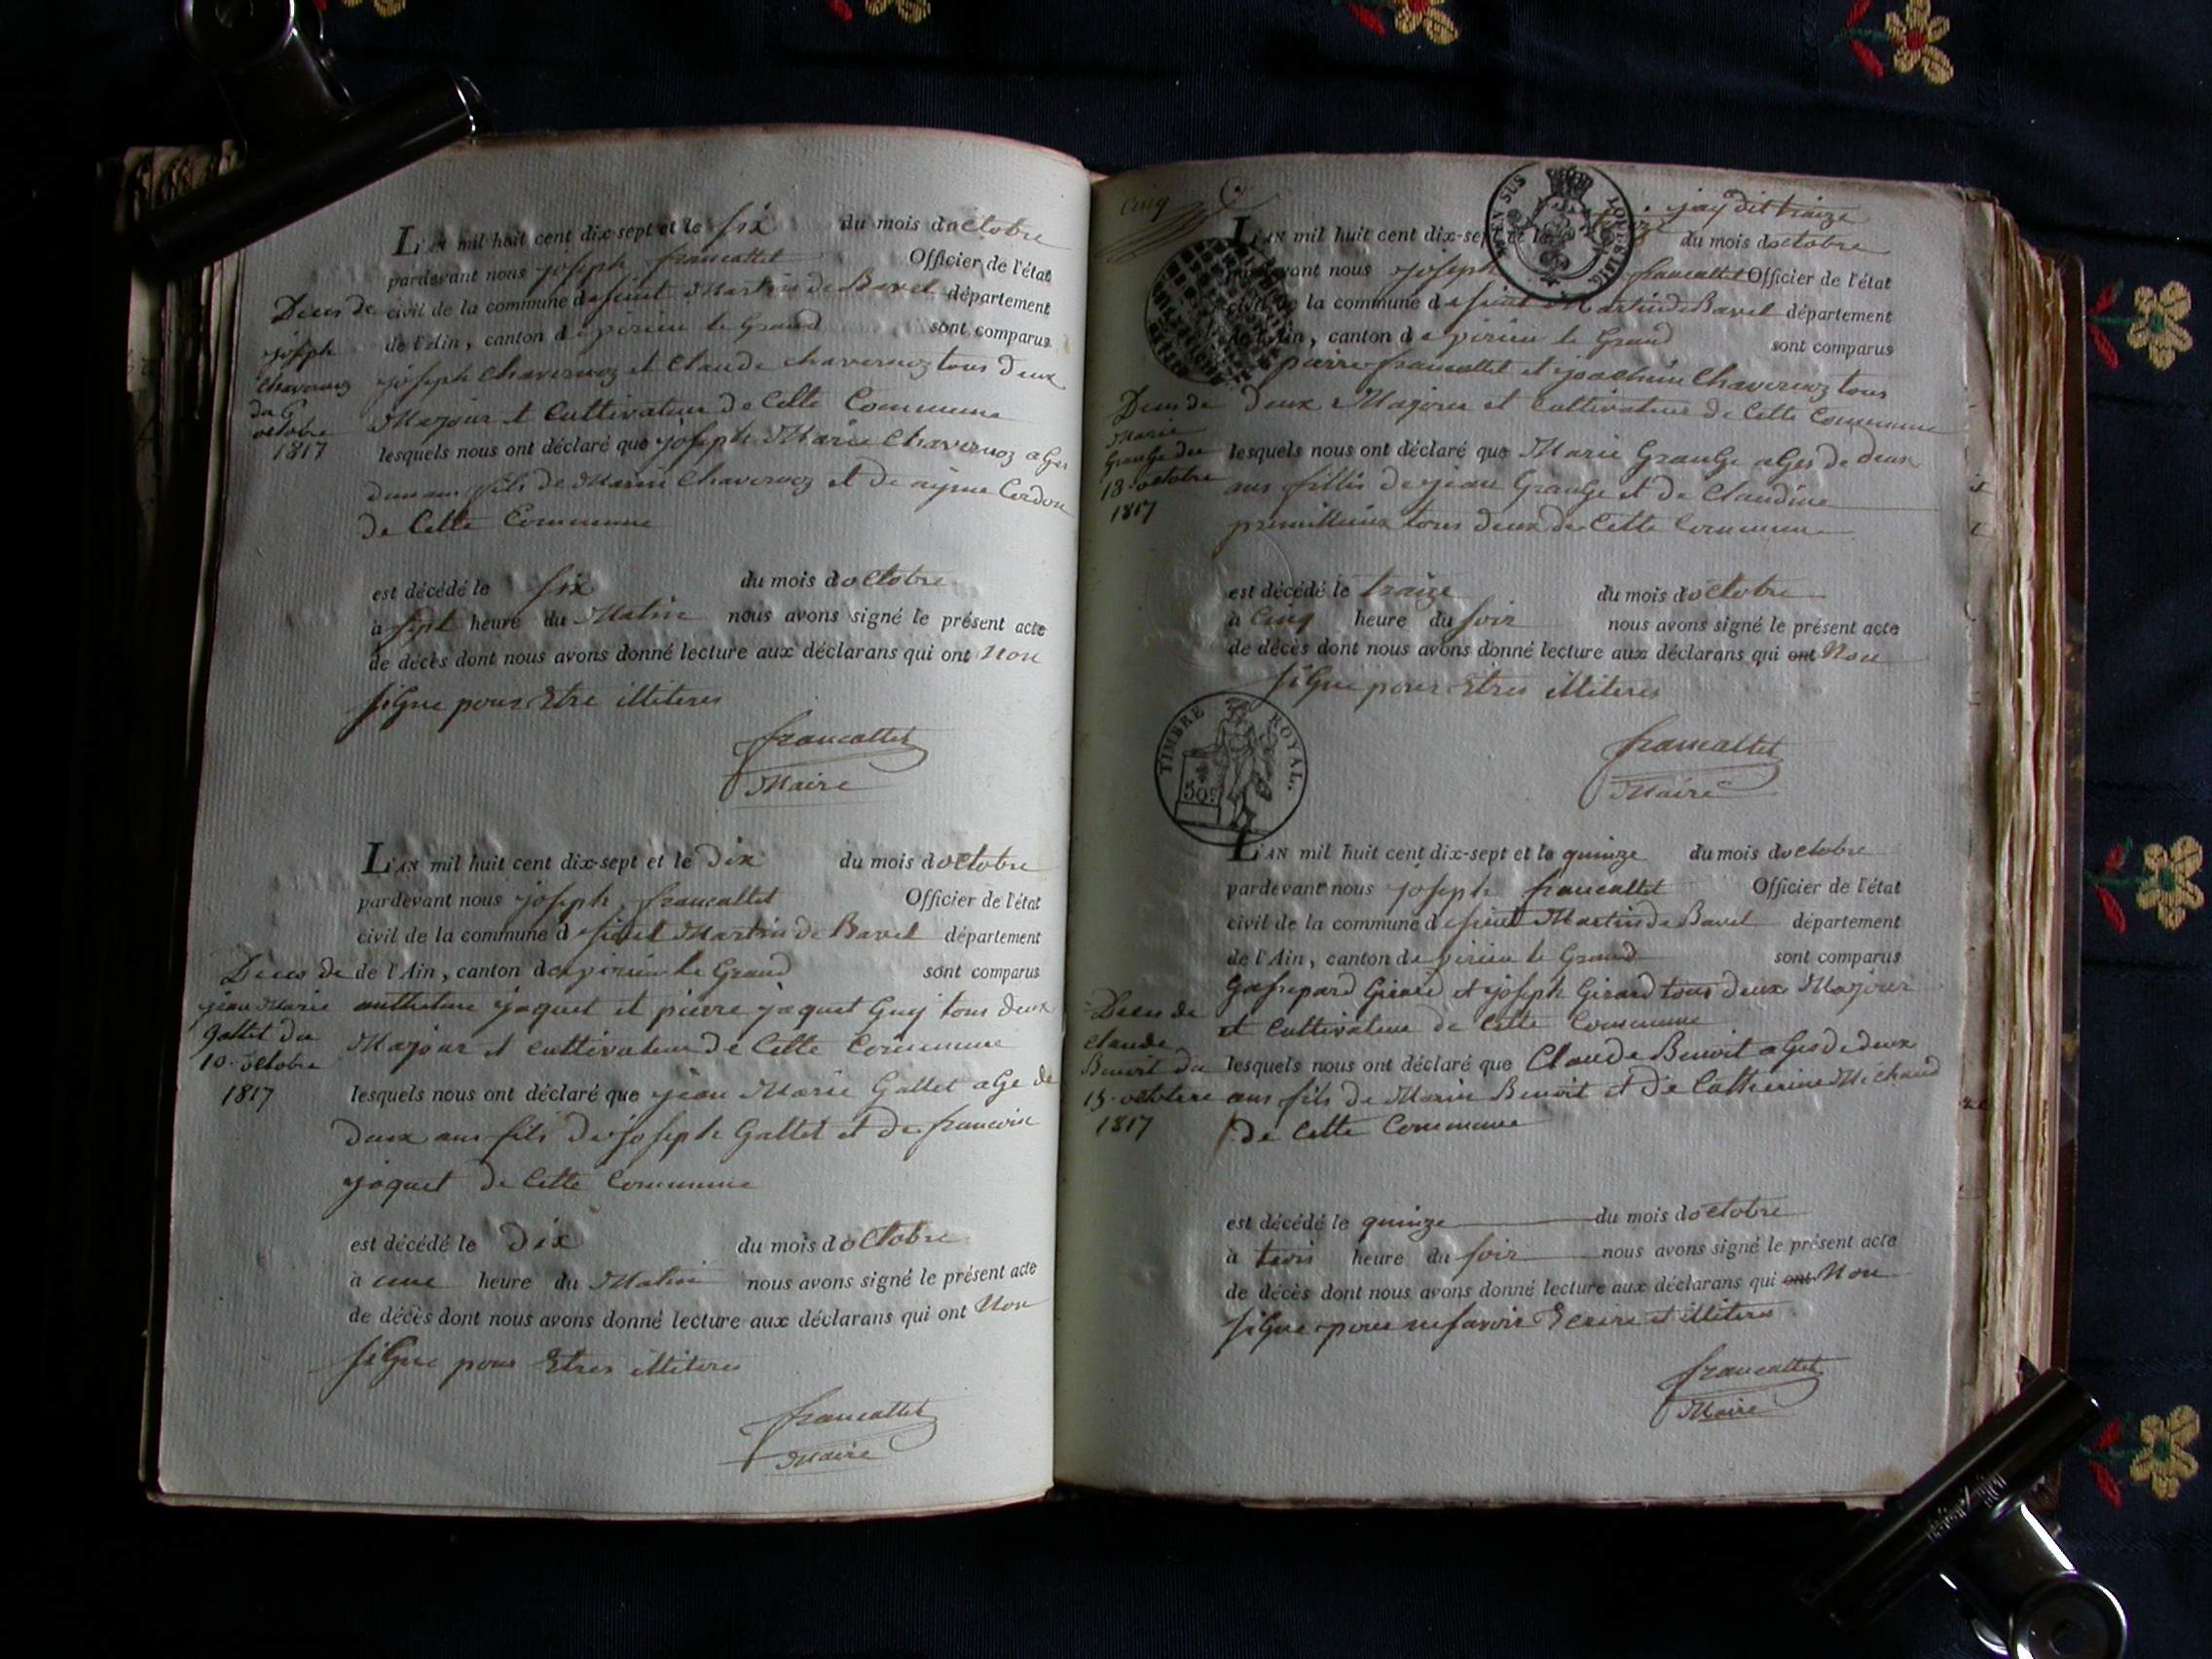 L'AN mil huit cent dix-sept et le six du mois doctobre
pardevant nous joseph francallet Officier de l'état
civil de la commune de saint Martin de Bavel département
de l'Ain, canton de virieu le Grand sont comparus
joseph Chavernoz et Claude Chavernoz tous deux
Majour et Cultivateur de Cette Commune
lesquels nous ont déclaré que joseph Marie Chavernoz agés
dun ans fils de Marin Chavernoz et de Cerdon
de Cette Commune
Deces de
joseph
Chavernoz
du 6
octobre
1817
est décédé le six du mois doctobre
à sept heure du Matin nous avons signé le présent acte
de décès dont nous avons donné lecture aux déclarans qui ont Non
signe pour Etre illiteres
francallet
Maire
L'AN mil huit cent dix-sept et le dix du mois doctobre
pardevant nous joseph francallet Officier de l'état
civil de la commune de saint Martin de Bavel département
de l'Ain, canton de virieu le Grand sont comparus
anthelme jaquet et pierre jaquet Guy tous deux
Majour et cultivateur de Cette Commune
lesquels nous ont déclaré que jean Marie Gallet age de
deux ans fils de joseph Gallet et de francoise
jaquet de Cette Commune
Deces de
jean Marie
Gallet du
10 octobre
1817
est décédé le dix du mois doctobre
à une heure du Matin nous avons signé le présent acte
de décès dont nous avons donné lecture aux déclarans qui ont Non
signe pour Etres illiteres
francallet
Maire
Cinq
jay dit traize
L'AN mil huit cent dix-sept et le du mois doctobre
pardevant nous joseph francallet Officier de l'état
civil de la commune de saint Martin de Bavel département
de l'Ain, canton de virieu le Grand sont comparus
pierre francallet et joachim Chavernoz tous
deux Majour et Cultivateur de Cette Commune
lesquels nous ont déclaré que Marie Grange agés de deux
ans fillis de jean Grange et de Claudine
tous deux de Cette Commune
Deces de
Marie
Grange du
13 octobre
1817
est décédé le traize du mois doctobre
à Cinq heure du soir nous avons signé le présent acte
de décès dont nous avons donné lecture aux déclarans qui ont Non
signe pour Etres illiteres
francallet
Maire
TIMBRE ROYAL.
50c
L'AN mil huit cent dix-sept et le quinze du mois doctobre
pardevant nous joseph francallet Officier de l'état
civil de la commune de saint Martin de Bavel département
de l'Ain, canton de virieu le Grand sont comparus
Gaspard Girard et joseph Girard tous deux Majour
et Cultivateur de Cette Commune
lesquels nous ont déclaré que Claude Benoit agés de deux
ans fils de Marin Benoit et de Catherine Michaud
de Cette Commune
Deces de
Claude
Benoit du
15 octobre
1817
est décédé le quinze du mois doctobre
à trois heure du soir nous avons signé le présent acte
de décès dont nous avons donné lecture aux déclarans qui ont Non
signe pour ne savoir Ecrire et illiteres
francallet
Maire